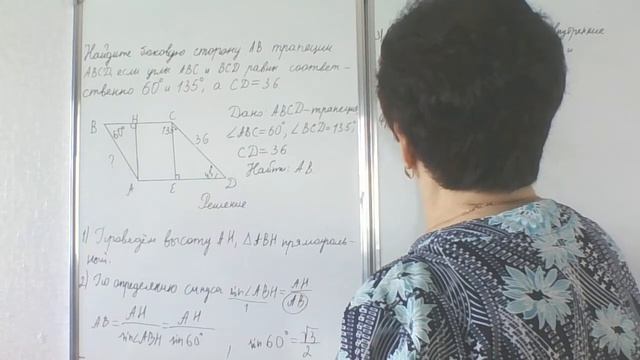 Найдите боковую сторону AB трапеции
ABCD, если углы ABC и BCD равны соответ-
ственно 60° и 135°, а CD=36
B H C
60° 135° 36
?
A E D
45°
Дано: ABCD-трапеция
∠ABC=60°, ∠BCD=135°,
CD=36
Найти: AB
Решение
1) Проведём высоту AH, △ABH прямоуголь-
ный.
2) По определению синуса sin∠ABH/1 = AH/AB
AB = AH/sin∠ABH = AH/sin60°, sin60° = √3/2
внутренние
и